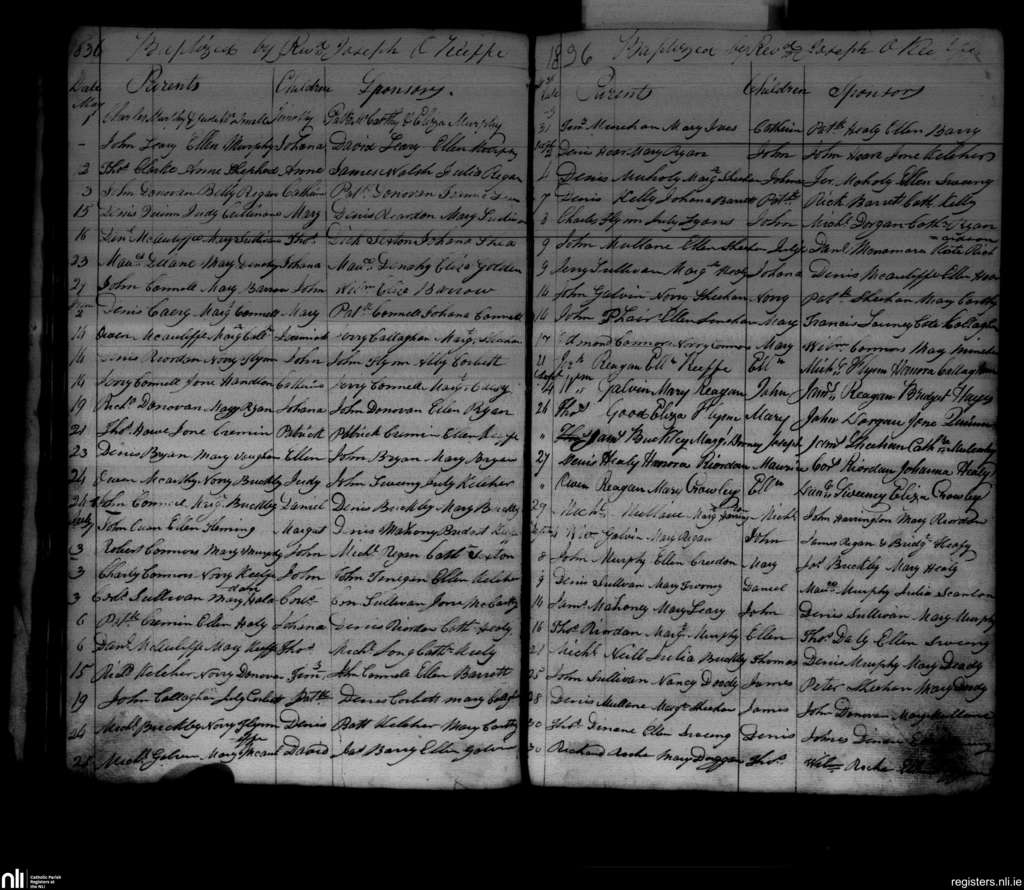 1836 Baptized by Revd Joseph O Keeffe
Date Parents Children Sponsors
May
1 Charles Murphy Timothy Patk McCarthy & Eliza Murphy
- John Leary Ellen Murphy Johana David Leary Ellen Murphy
2 Thos Clarke Anne Shephard Anne James Walsh Julia Regan
3 John Donovan Betty Regan Cathne Patk Donovan
15 Denis Quinn Judy Cullinane Mary Denis Reardon Mary
16 McAuliffe Mary Sullivan Thos Dick Sexton Johana Shea
23 Mauce Duane Mary Linehy Johana Mauce Linehy Eliza Golden
27 John Connell Mary Barron John Barrow
June 2 Denis Casey Margt Connell Mary Patk Connell Johana Connell
14 Owen McAuliffe Jeremiah Jerry Callaghan Margt
16 Denis Riordan Nory Flynn John John Flynn Abby Corbett
16 Jerry Connell Jone Hanlon Cathrine Jerry Connell Mary Casey
19 Richd Donovan Mary Ryan Johana John Donovan Ellen Ryan
21 Thos Howe Jone Cremin Patrick Patrick Cremin Ellen Keeffe
23 Denis Bryan Mary Vaughan Ellen John Bryan Mary Bryan
24 Owen McCarthy Nory Buckley Judy John Sweeny July Kelcher
24 John Connell Margt Buckly Daniel Denis Buckley Mary Buckly
July John Quan Ellen Fleming Margat Denis Mahony Bridget
3 Robert Connors Mary John Michl Regan Cath Sexton
3 Charly Connors Nory Keeffe John John Finegan Ellen Kelcher
3 Corls Sullivan Mary Corls Con Sullivan Jone McCarthy
6 Patk Cremin Ellen Healy Johana Denis Riordan Cath Healy
6 Danl McAuliffe Mary Keeffe Thos Michl Long Cath Healy
15 Richd Kelcher Nory Donovan John Connell Ellen Barrett
19 John Callaghan July Corbett Patk Denis Corbett mary
24 Michl Buckley Nory Flynn Denis Patt Kelcher Mary Carthy
25 Michl Galvin Mary David Jas Barry Ellen Galvin
1836 Baptyzed by Revd Joseph O Keeffe
Parents Children Sponsors
31 Jerh Minehan Mary Ives Cathrin Patk Healy Ellen Barry
Denis Hoar Mary Ryan John John Hoare Jone Kelcher
4 Denis Muholy Margt Sheehan Johna Jer Moholy Ellen Sweeny
7 Denis Kelly Johana Barrett Patk Rick Barrett Cath Kelly
3 Charles Flynn July Lyons John Michl Dorgan Cathe Ryan
9 John Mullane Ellen Sheehan Judy Danl Menamara Kate
9 Jerry Sullivan Margt Healy Johana Denis McAuliffe Ellen
14 John Galvin Nory Sheehan Nory Patk Sheehan Mary Carthy
14 John P Hair Ellen Linehan Mary Francis Cate Callaghan
17 Edmond Connors Nory Connors Mary Willm Connors Mary
21 Jerh Reagan Elln Keeffe Elln Michl Flynn Honora Callaghan
14 Willm Galvin Mary Reagan John James Reagan Bridget Hayes
26 Thos Good Eliza Flynn Mary John Dorgan Jone Quinn
" James Buckley Margt Joseph Jerh Sheehan Cath
27 Denis Healy Honora Riordan Maurice Cors Riordan Johanna Healy
" Owen Reagan Mary Crowley Elln Danl Sweeney Eliza Crowley
29 Michl Mullane Margt Michl John Harrington Mary Riordan
Wm Galvin Mary Regan John James Regan & Bridgt Healy
8 John Murphy Ellen Creedon Mary Jas Buckley Mary Healy
9 Denis Sullivan Mary Daniel Mauce Murphy Julia Scanlan
14 James Mahoney Mary Leary John Denis Sullivan Mary Murphy
16 Thos Riordan Margt Murphy Ellen Thos Daly Ellen Sweeny
21 Michl Neill Julia Buckly Thomas Denis Murphy Mary Doody
25 John Sullivan Nancy Doody James Peter Sheehan Mary Doody
28 Denis Mullane Margt Sheehan James John Donovan Mary Mullane
30 Thos Dinane Ellen Sweeny Denis James Dinane
30 Richard Roche Mary Duggan Thos Willm Roche
nli
Catholic Parish
Registers at
the NLI
registers.nli.ie